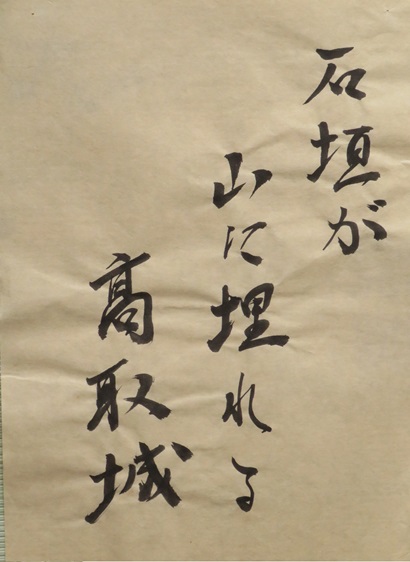 石垣が
山に埋れる
高取城